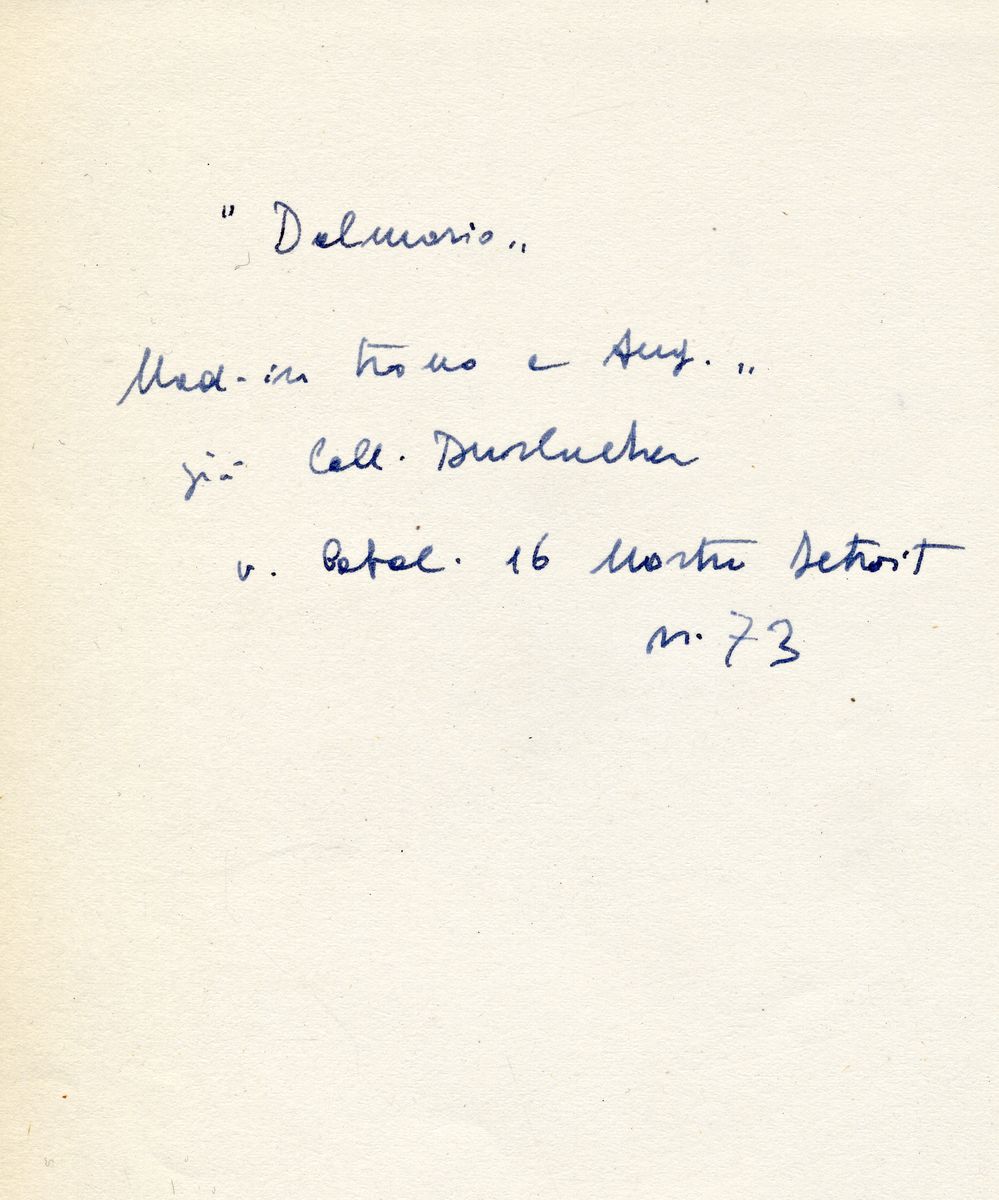 " Dalmasio „
Mad. in trono e Ang. „
già Coll. Durlacher
v. Catal. 16 Mostra Detroit
n. 73